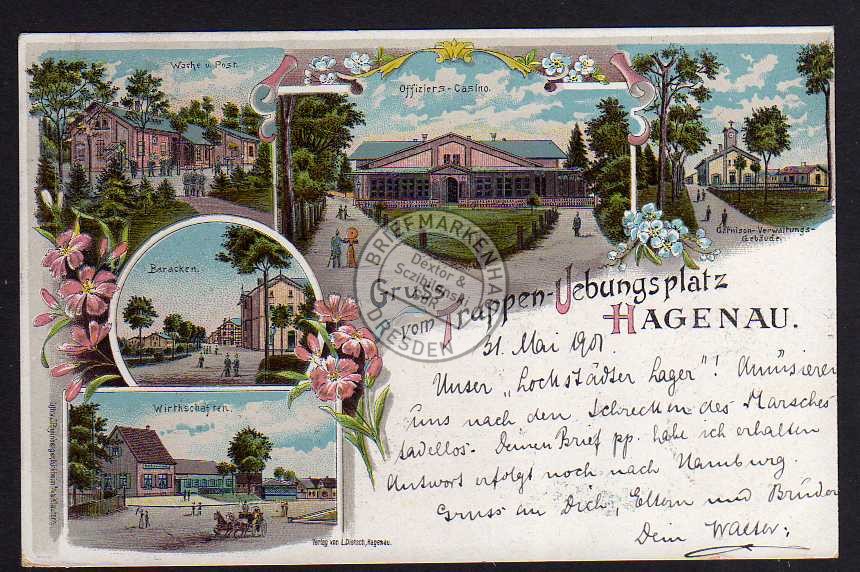 Wache u. Post.
Offiziers-Casino.
Garnison-Verwaltungs-
Gebäude.
Baracken.
Wirthschaften.
Gruss
vom Truppen-Uebungsplatz
HAGENAU.
31. Mai 1901
Unser „Lockstädter Lager"! Amüsieren
uns nach den Schrecken des Marsches
tadellos. Deinen Brief pp. habe ich erhalten
Antwort erfolgt noch nach Hamburg.
Gruss an Dich, Eltern und Brüder
Dein Walter.
Verlag von L. Dietsch, Hagenau.
BRIEFMARKENHAUS
Dextor &
DRESDEN